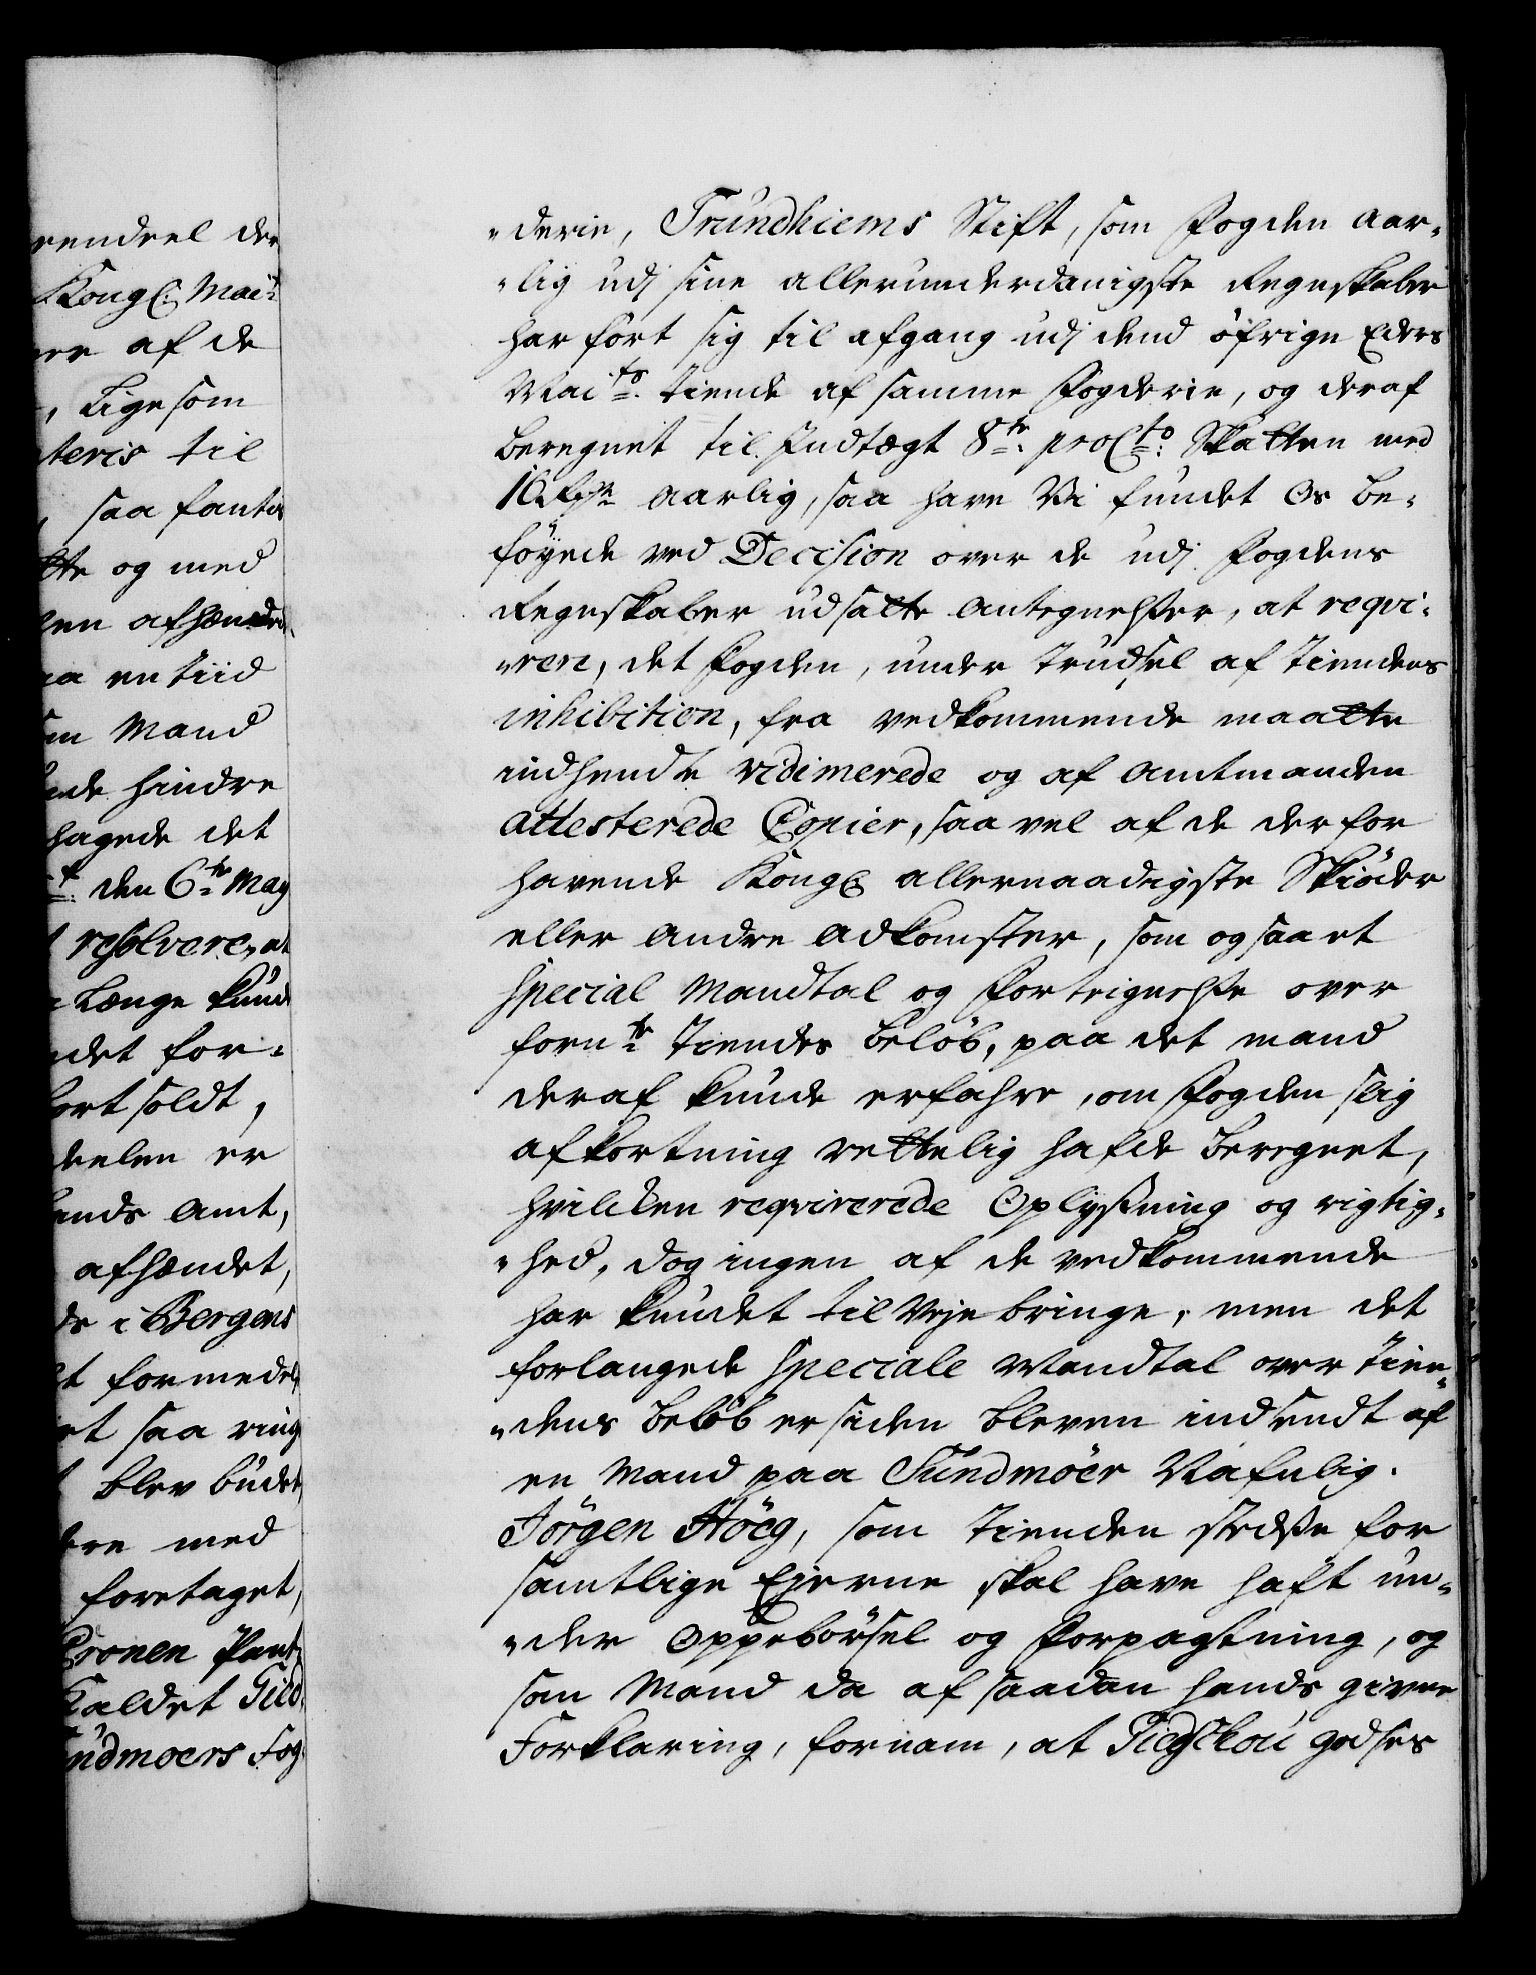 rendeel der
Kongl: Mai:ts
ere af de
, Ligesom
teris til
, saa fantes
tte og med
len afhænded
aa en tiid
en Mand
ende hindre
hagede det
den 6te May
resolvere, at
Længe kund
det for=
bort soldt,
deelen er
lands Amt,
afhændet,
ds i Bergens
t formedelst
et saa ring
blev buden
ere med
foretaget,
Cronen Pant
Kaldet Tied
undmoers Fog
"derie, Trundhiems Stift, som Fogden aar=
"lig udj sine allerunderdanigste Regnskaber
har ført sig til afgang udj dend öfrige Eders
Mai:ts Tiende af samme Fogderie, og deraf
beregnet til Indtægt 8te proCto: Skatten med
10 Rdr aarlig, saa have Vi fundet Os be=
föyede ved Decision over de udj Fogdens
Regnskaber udsatte Antegnelser, at reqvi=
"rere, det Fogden, under Trudsel af Tiendens
inhibition, fra vedkommende maatte
indhendte vidimerede og af Amtmanden
attesterede Copier, saa vel af de derfor
havende Kongl allernaadigste Skiöder
eller andre Adkomster, som og saa et
special Mandtal og Forteignelse over
fornte Tiendes beløb, paa det mand
deraf kunde erfahre, om Fogden slig
afkortning rettelig hafde beregnet,
hvilcken reqvirerede Oplysning og rigtig=
"hed, dog ingen af de vedkommende
har kundet til veje bringe, men det
forlangede speciale Mandtal over Tien=
"dens beløb er siden bleven indsendt af
en Mand paa Sundmöer Nafnlig.
Jörgen Höeg, som Tienden stedse for
samtlige Ejerne skal have haft un=
"der Oppebörsel og Forpagtning, og
som Mand da af saadan hands givne
Forklaring, fornam, at Tiegschou godses